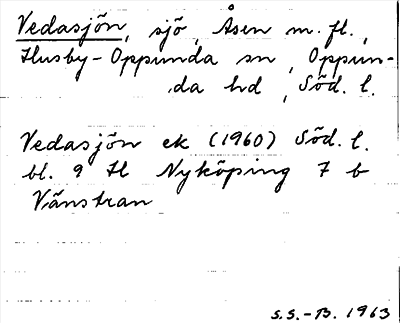 Vedasjön, sjö, Åsen m. fl.,
Husby-Oppunda sn, Oppun-
da hd, Söd. l.
Vedasjön ek (1960) Söd. l.
bl. 9 H Nyköping 7 b
Vänstran
S.S.-B. 1963